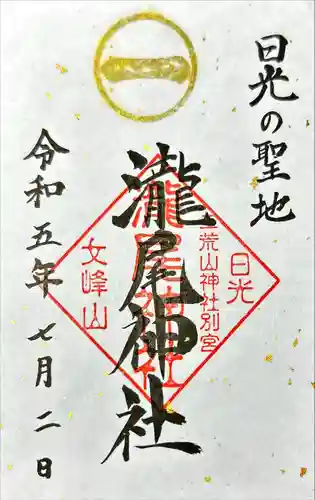 一
日光の聖地
瀧尾神社
令和五年七月二日
日光
二荒山神社別宮
瀧尾神社
女峰山